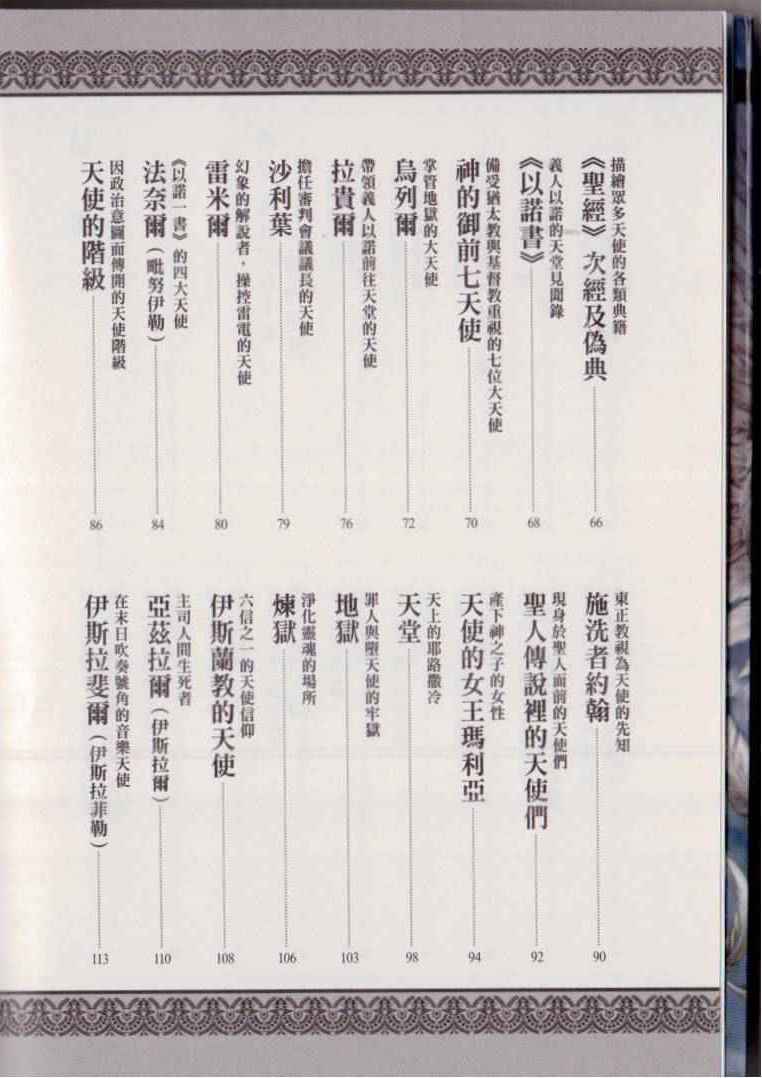 描繪眾多天使的各類典籍
《聖經》次經及偽典
66
義人以諾的天堂見聞錄
《以諾書》
68
備受猶太教與基督教重視的七位大天使
神的御前七天使
70
掌管地獄的大天使
烏列爾
72
帶領義人以諾前往天堂的天使
拉貴爾
76
擔任審判會議議長的天使
沙利葉
79
幻象的解說者，操控雷電的天使
雷米爾
80
《以諾一書》的四大天使
法奈爾（毗努伊勒）
84
因政治意圖而傳開的天使階級
天使的階級
86
東正教視為天使的先知
施洗者約翰
90
現身於聖人面前的天使們
聖人傳說裡的天使們
92
產下神之子的女性
天使的女王瑪利亞
94
天上的耶路撒冷
天堂
98
罪人與墮天使的牢獄
地獄
103
淨化靈魂的場所
煉獄
106
六信之一的天使信仰
伊斯蘭教的天使
108
主司人間生死者
亞茲拉爾（伊斯拉爾）
110
在末日吹奏號角的音樂天使
伊斯拉斐爾（伊斯拉菲勒）
113